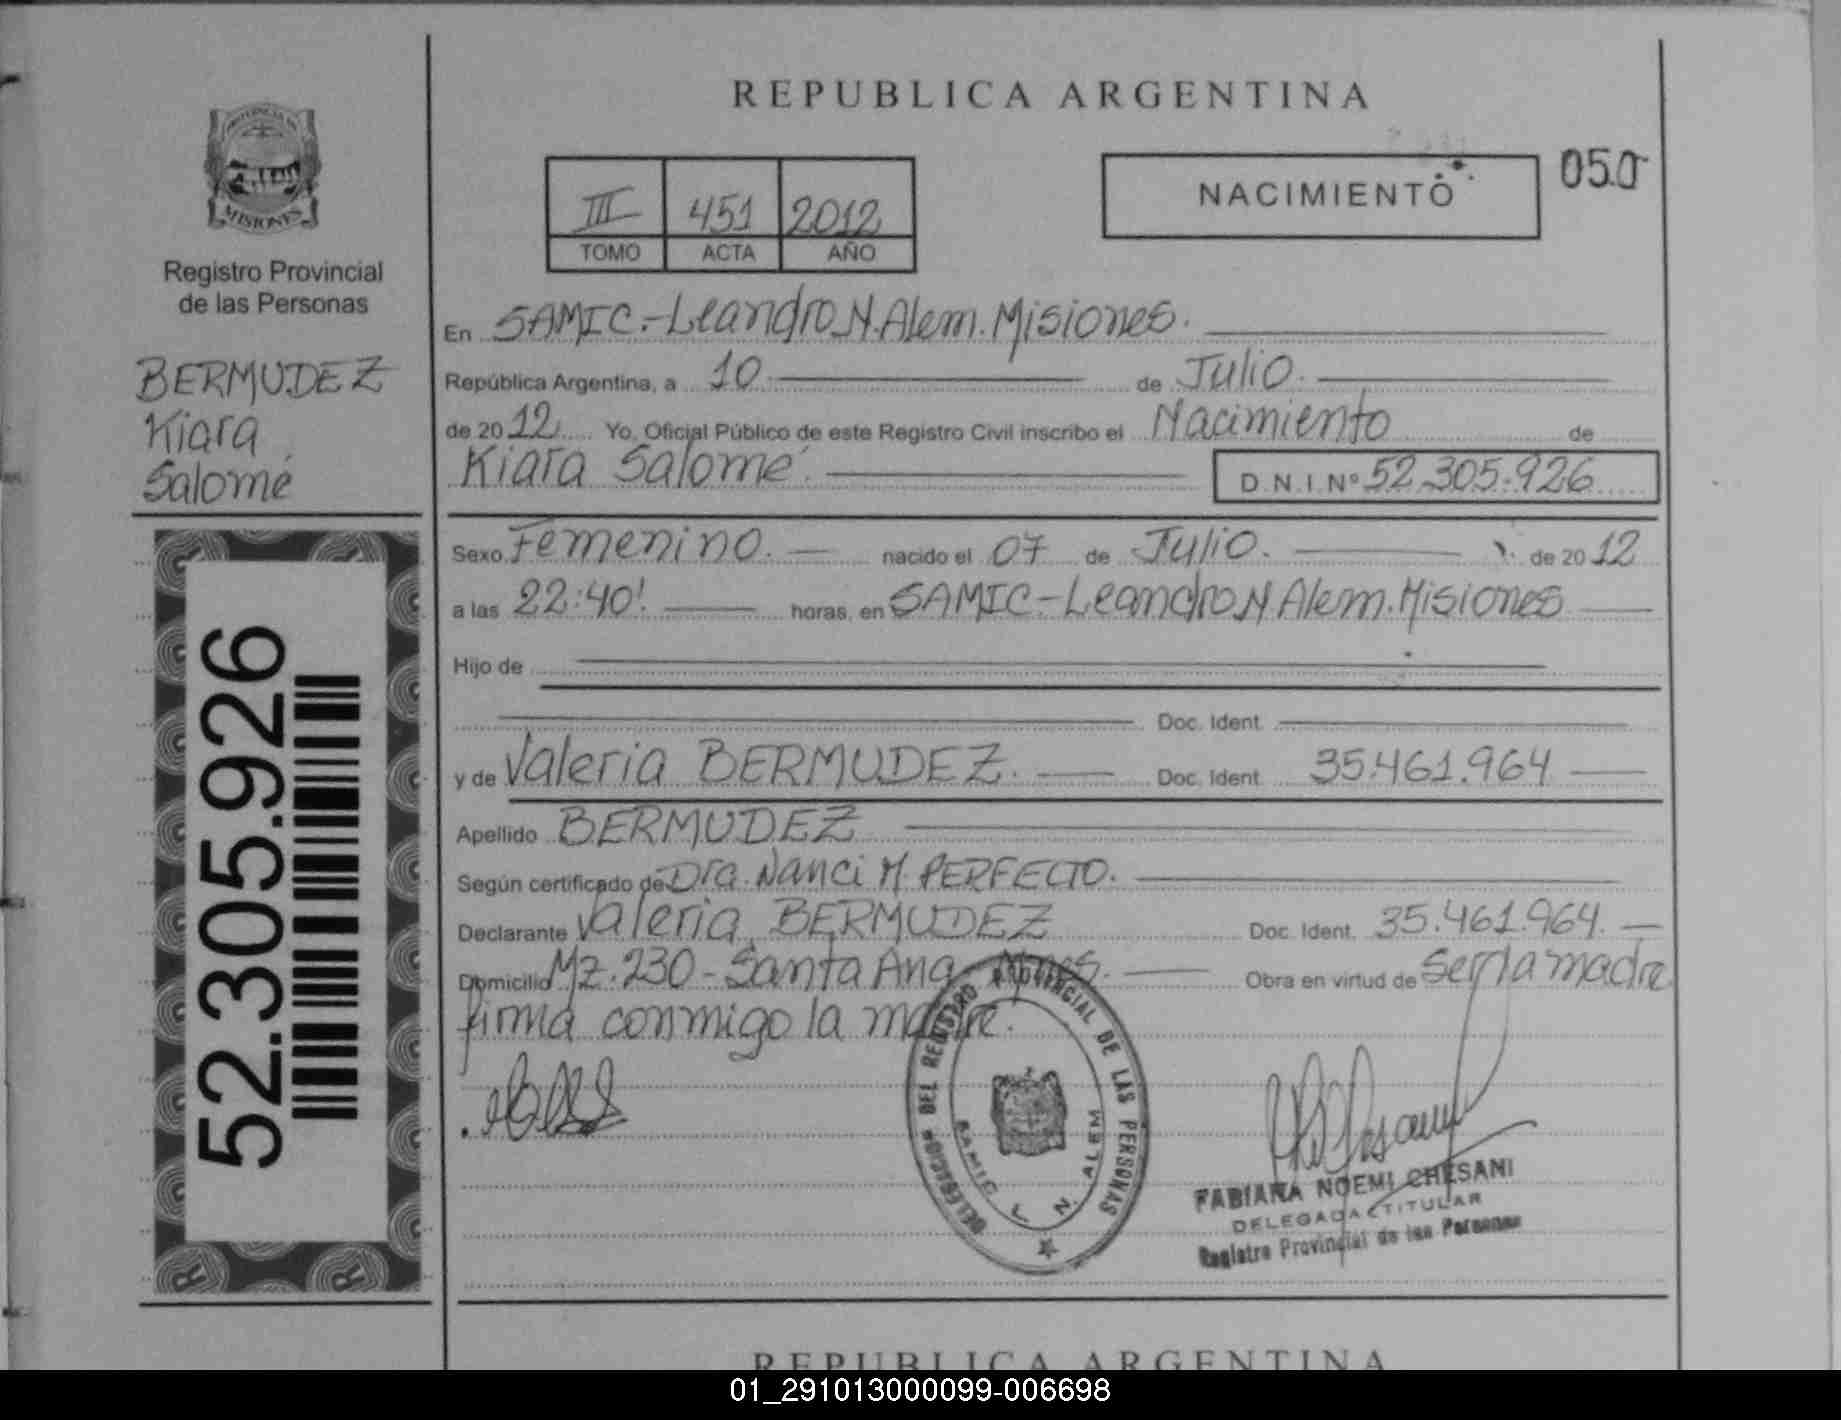 REPUBLICA ARGENTINA
NACIMIENTO
050
III 451 2012
TOMO ACTA AÑO
PROVINCIA DE
MISIONES
Registro Provincial
de las Personas
BERMUDEZ
Kiara
Salomé
52.305.926
En SAMIC.-Leandro N. Alem. Misiones.
República Argentina, a 10 de Julio.
de 2012 Yo, Oficial Público de este Registro Civil inscribo el Nacimiento de
Kiara Salomé. D.N.I.Nº 52.305.926
Sexo Femenino. nacido el 07 de Julio. de 2012
a las 22:40! horas, en SAMIC-Leandro N Alem. Misiones
Hijo de
Doc. Ident.
y de Valeria BERMUDEZ. Doc. Ident. 35.461.964
Apellido BERMUDEZ
Según certificado de Dra. Nanci M. PERFECTO.
Declarante Valeria BERMUDEZ Doc. Ident. 35.461.964.
Domicilio Mz. 230 - Santa Ana - Mnes. Obra en virtud de Ser la madre
firma conmigo la madre.
DELEGACION DEL REGISTRO PROVINCIAL DE LAS PERSONAS
SAMIC L. N. ALEM
FABIANA NOEMI CHESANI
DELEGADA TITULAR
Registro Provincial de las Personas
REPUBLICA ARGENTINA
01_291013000099-006698